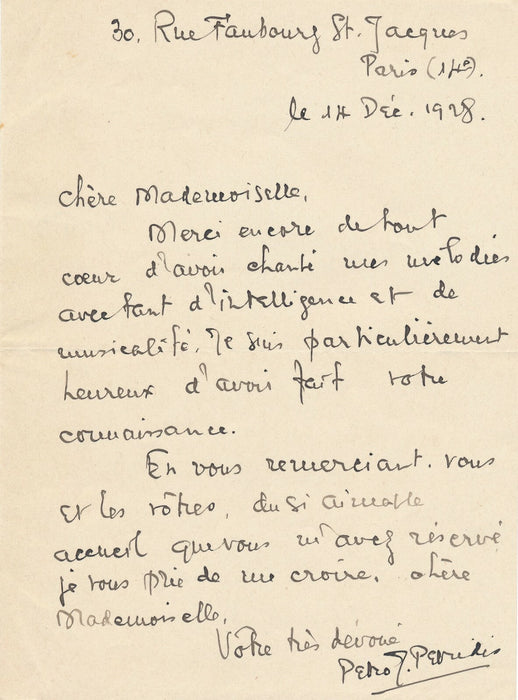 30, Rue Faubourg St. Jacques
Paris (14e).
le 14 Déc. 1928.
Chère Mademoiselle,
Merci encore de tout
cœur d'avoir chanté mes mélodies
avec tant d'intelligence et de
musicalité. Je suis particulièrement
heureux d'avoir fait votre
connaissance.
En vous remerciant, vous
et les vôtres, du si aimable
accueil que vous m'avez réservé
je vous prie de me croire, chère
Mademoiselle,
Votre très dévoué
Petro J. Petridis